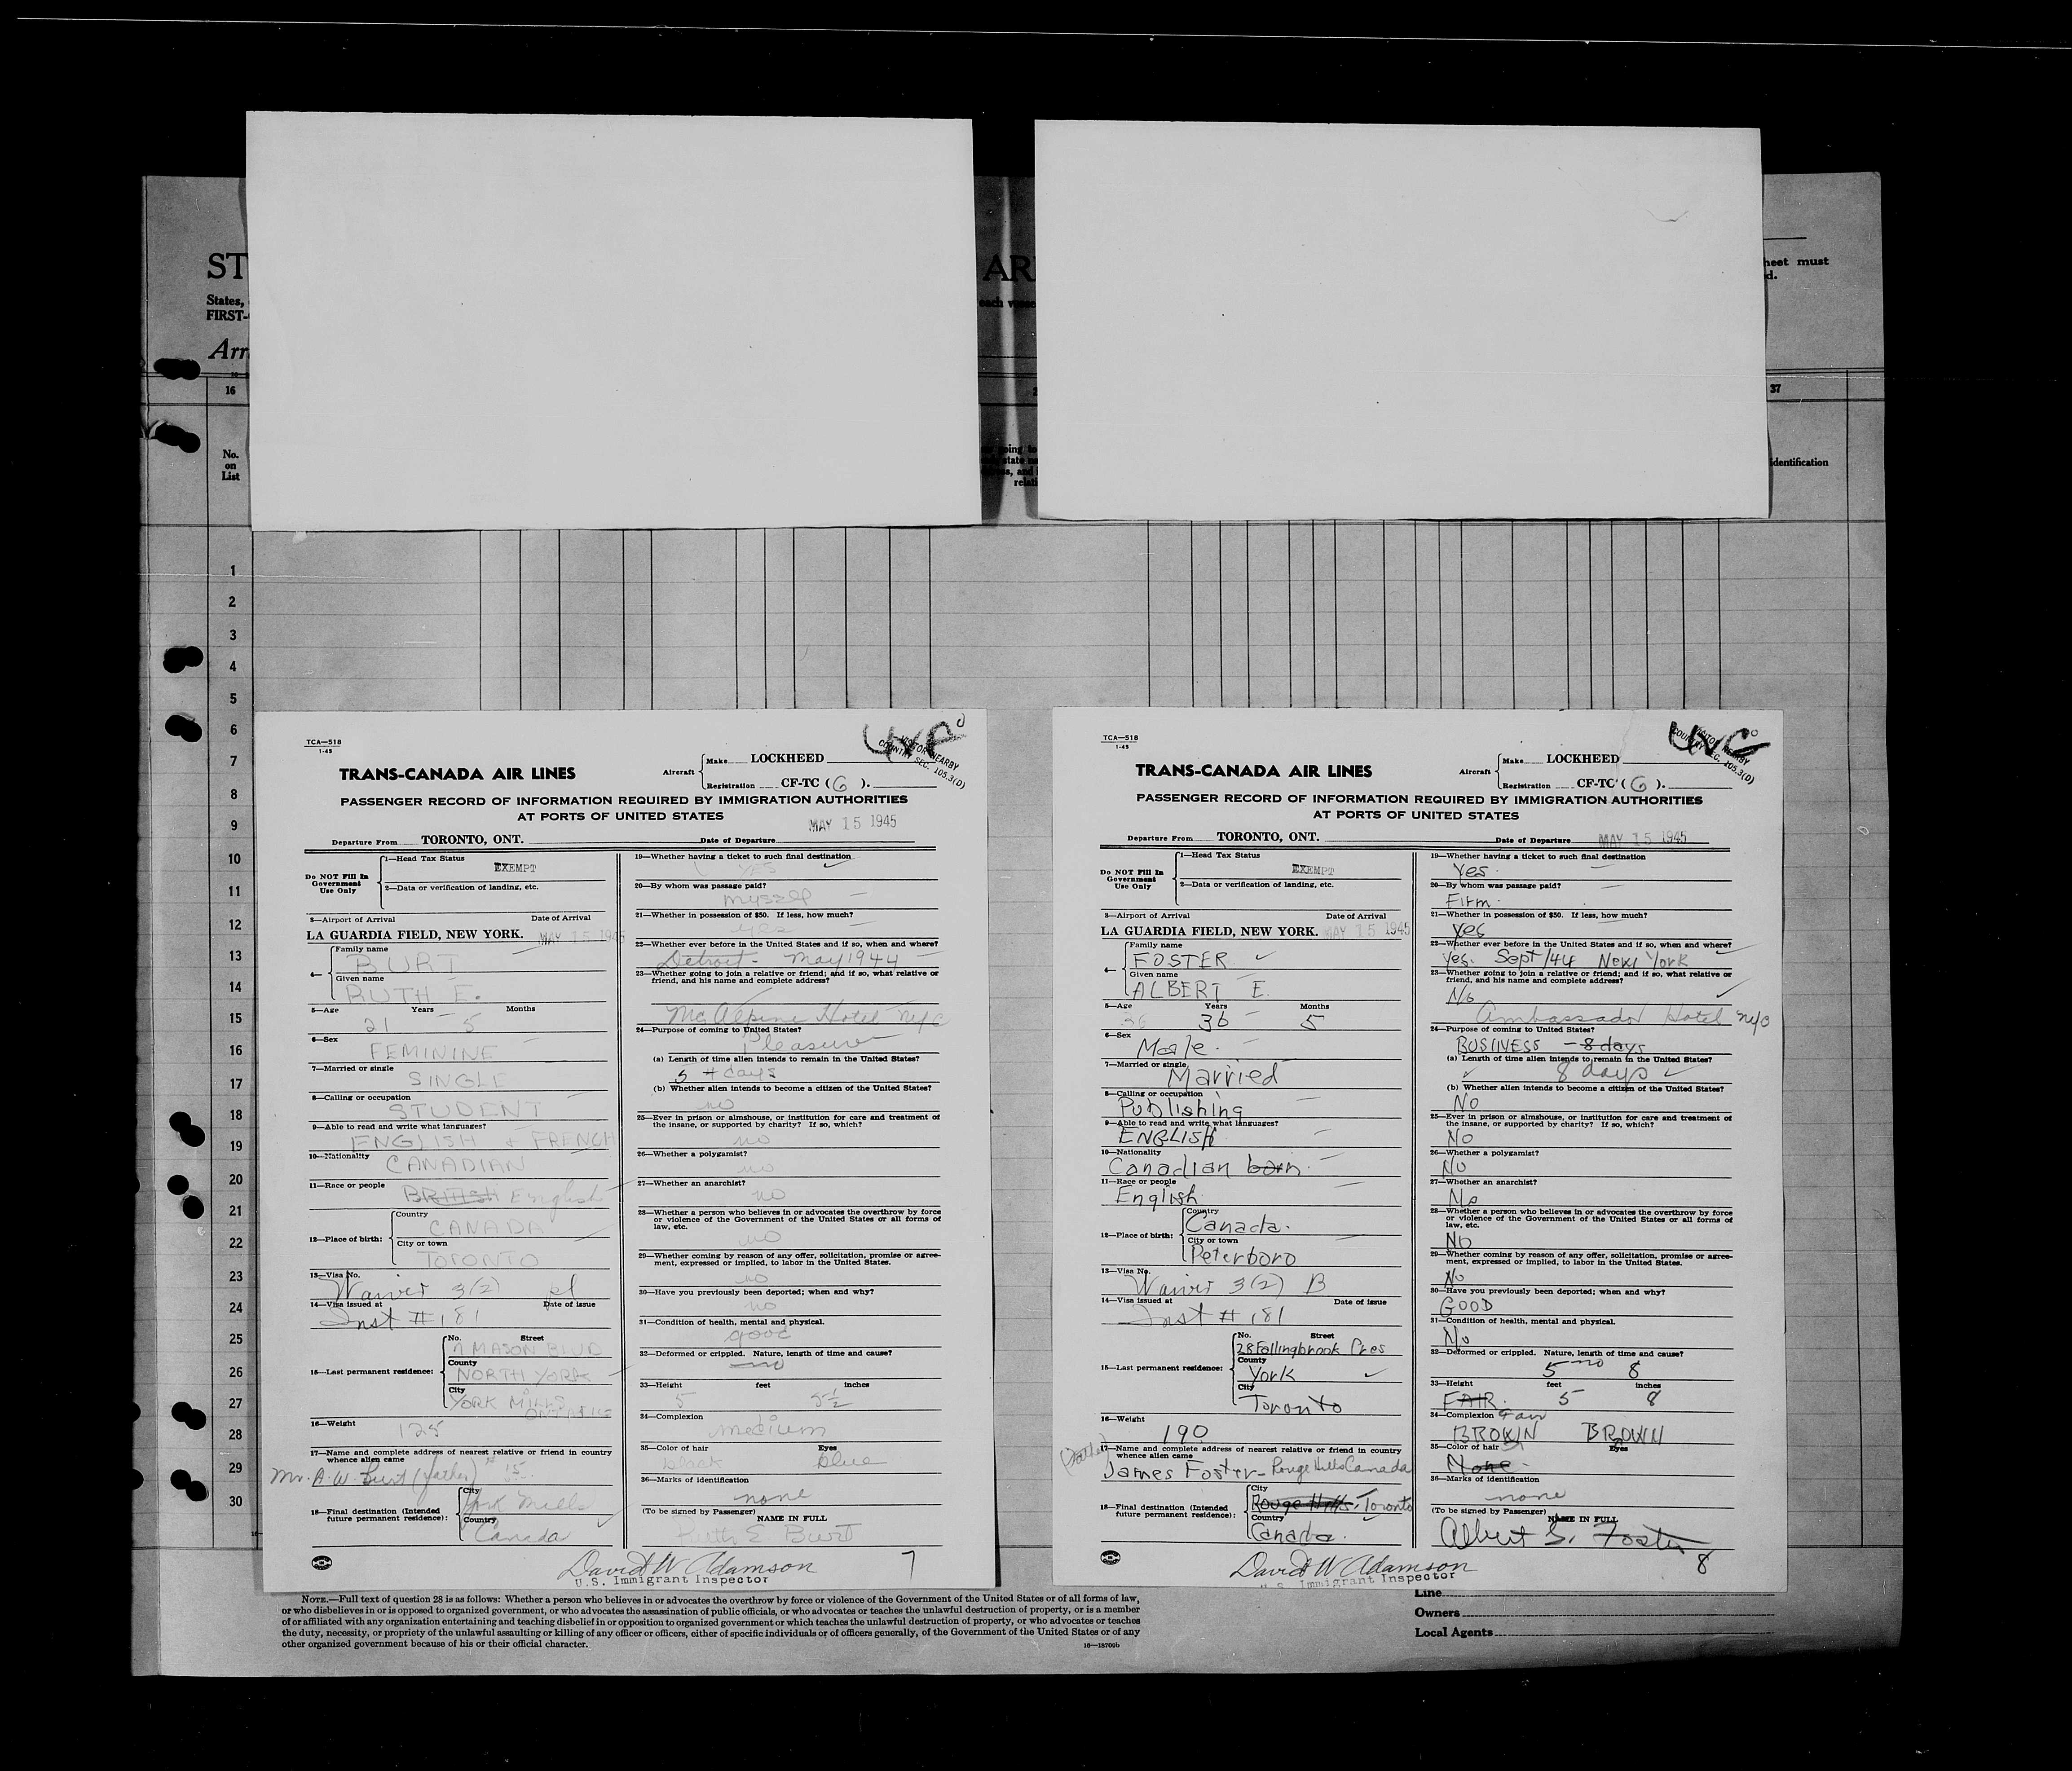 ST
AR
States,
each
FIRST-
Arr
heet must
d.
16
37
No.
on
List
going to
state
identification
1
2
3
4
5
6
7
8
9
10
11
12
13
14
15
16
17
18
19
20
21
22
23
24
25
26
27
28
29
30
TCA—518
1-45
TRANS-CANADA AIR LINES
Aircraft
Make LOCKHEED
Registration CF-TC ( G ).
COUNTRY SEC. 105.3(D)
PASSENGER RECORD OF INFORMATION REQUIRED BY IMMIGRATION AUTHORITIES
AT PORTS OF UNITED STATES
MAY 15 1945
Departure From TORONTO, ONT. Date of Departure
Do NOT Fill In Government Use Only
1—Head Tax Status
EXEMPT
2—Data or verification of landing, etc.
3—Airport of Arrival Date of Arrival
LA GUARDIA FIELD, NEW YORK. MAY 15 1945
4— Family name
BURT
Given name
RUTH E.
5—Age Years Months
21 5
6—Sex
FEMININE
7—Married or single
SINGLE
8—Calling or occupation
STUDENT
9—Able to read and write what languages?
ENGLISH + FRENCH
10—Nationality
CANADIAN
11—Race or people
BRITISH English
12—Place of birth:
Country
CANADA
City or town
TORONTO
13—Visa No.
Waiver 3(2) pl
14—Visa issued at Date of issue
Inst # 181
15—Last permanent residence:
No. Street
7 MASON BLVD
County
NORTH YORK
City
YORK MILLS
ONTARIO
16—Weight
125
17—Name and complete address of nearest relative or friend in country
whence alien came
Mr. A. W. Burt (father)
18—Final destination (Intended
future permanent residence):
City
York Mills
Country
Canada
19—Whether having a ticket to such final destination
YES
20—By whom was passage paid?
myself
21—Whether in possession of $50. If less, how much?
yes
22—Whether ever before in the United States and if so, when and where?
Detroit - May 1944
23—Whether going to join a relative or friend; and if so, what relative or
friend, and his name and complete address?
Mc Alpine Hotel NYC
24—Purpose of coming to United States?
Pleasure
(a) Length of time alien intends to remain in the United States?
5 days
(b) Whether alien intends to become a citizen of the United States?
no
25—Ever in prison or almshouse, or institution for care and treatment of
the insane, or supported by charity? If so, which?
no
26—Whether a polygamist?
no
27—Whether an anarchist?
no
28—Whether a person who believes in or advocates the overthrow by force
or violence of the Government of the United States or all forms of
law, etc.
no
29—Whether coming by reason of any offer, solicitation, promise or agree-
ment, expressed or implied, to labor in the United States.
no
30—Have you previously been deported; when and why?
no
31—Condition of health, mental and physical.
good
32—Deformed or crippled. Nature, length of time and cause?
no
33—Height feet inches
5 5½
34—Complexion
medium
35—Color of hair Eyes
black blue
36—Marks of identification
none
(To be signed by Passenger)
NAME IN FULL
Ruth E Burt
David W Adamson
U.S. Immigrant Inspector
7
TCA—518
1-45
TRANS-CANADA AIR LINES
Aircraft
Make LOCKHEED
Registration CF-TC ( G ).
VISITOR NEARBY
COUNTRY SEC. 105.3(D)
PASSENGER RECORD OF INFORMATION REQUIRED BY IMMIGRATION AUTHORITIES
AT PORTS OF UNITED STATES
MAY 15 1945
Departure From TORONTO, ONT. Date of Departure
Do NOT Fill In Government Use Only
1—Head Tax Status
EXEMPT
2—Data or verification of landing, etc.
3—Airport of Arrival Date of Arrival
LA GUARDIA FIELD, NEW YORK. MAY 15 1945
4— Family name
FOSTER
Given name
ALBERT E.
5—Age Years Months
36 36 5
6—Sex
Male.
7—Married or single
Married
8—Calling or occupation
Publishing
9—Able to read and write what languages?
ENGLISH
10—Nationality
Canadian born.
11—Race or people
English
12—Place of birth:
Country
Canada.
City or town
Peterboro
13—Visa No.
Waiver 3(2) B
14—Visa issued at Date of issue
Inst # 181
15—Last permanent residence:
No. Street
28 Fallingbrook Cres
County
York
City
Toronto
16—Weight
190
17—Name and complete address of nearest relative or friend in country
whence alien came
(Father)
James Foster - Rouge Hills Canada
18—Final destination (Intended
future permanent residence):
City
Rouge Hills. Toronto
Country
Canada.
19—Whether having a ticket to such final destination
Yes.
20—By whom was passage paid?
Firm.
21—Whether in possession of $50. If less, how much?
Yes
22—Whether ever before in the United States and if so, when and where?
Yes. Sept/44 New York
23—Whether going to join a relative or friend; and if so, what relative or
friend, and his name and complete address?
No
Ambassador Hotel NYC
24—Purpose of coming to United States?
BUSINESS - 8 days
(a) Length of time alien intends to remain in the United States?
8 days
(b) Whether alien intends to become a citizen of the United States?
No
25—Ever in prison or almshouse, or institution for care and treatment of
the insane, or supported by charity? If so, which?
No
26—Whether a polygamist?
No
27—Whether an anarchist?
No
28—Whether a person who believes in or advocates the overthrow by force
or violence of the Government of the United States or all forms of
law, etc.
NO
29—Whether coming by reason of any offer, solicitation, promise or agree-
ment, expressed or implied, to labor in the United States.
No
30—Have you previously been deported; when and why?
GOOD
31—Condition of health, mental and physical.
No
32—Deformed or crippled. Nature, length of time and cause?
5 no 8
33—Height feet inches
FAIR. 5 8
34—Complexion Fair
BROWN BROWN
35—Color of hair Eyes
None.
36—Marks of identification
none
(To be signed by Passenger)
NAME IN FULL
Albert E. Foster
David W Adamson
U.S. Immigrant Inspector
8
NOTE.—Full text of question 28 is as follows: Whether a person who believes in or advocates the overthrow by force or violence of the Government of the United States or of all forms of law,
or who disbelieves in or is opposed to organized government, or who advocates the assassination of public officials, or who advocates or teaches the unlawful destruction of property, or is a member
of or affiliated with any organization entertaining and teaching disbelief in or opposition to organized government or which teaches the unlawful destruction of property, or who advocates or teaches
the duty, necessity, or propriety of the unlawful assaulting or killing of any officer or officers, either of specific individuals or of officers generally, of the Government of the United States or of any
other organized government because of his or their official character.
16—18709b
Line
Owners
Local Agents